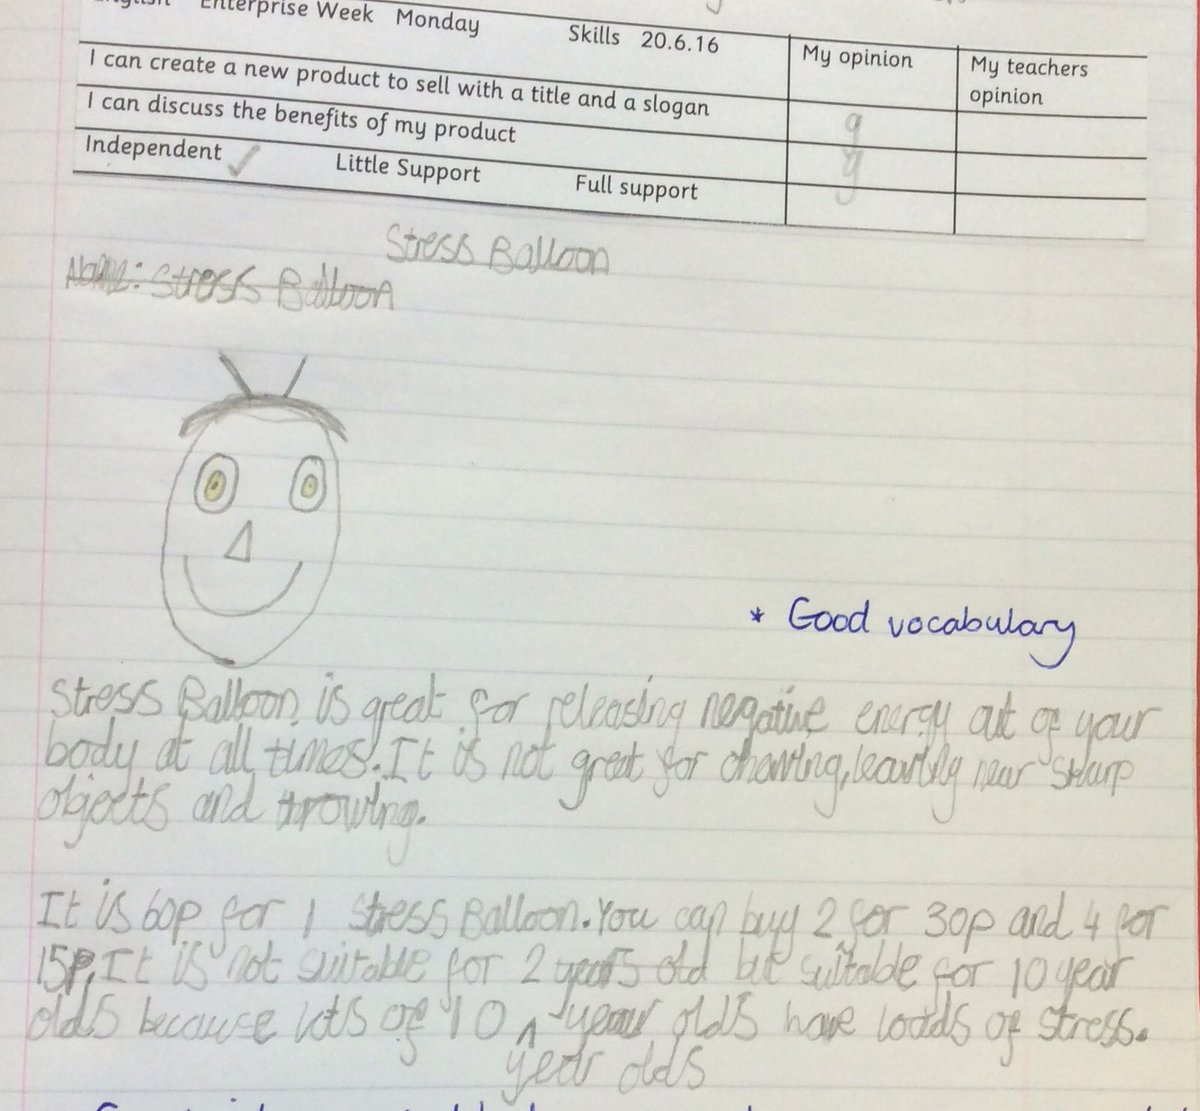 English Enterprise Week Monday Skills 20.6.16
My opinion
My teachers
opinion
I can create a new product to sell with a title and a slogan
g
I can discuss the benefits of my product
g
Independent ✓ Little Support Full support
Stress Balloon
Name: Stress Balloon
* Good vocabulary
Stress Balloon is great for releasing negative energy out of your
body at all times. It is not great for chewing, leaving near sharp
objects and throwing.
It is 60p for 1 Stress Balloon. You can buy 2 for 30p and 4 for
15p. It is not suitable for 2 years old but suitable for 10 year
olds because lots of 10 year olds have loads of stress.
year olds